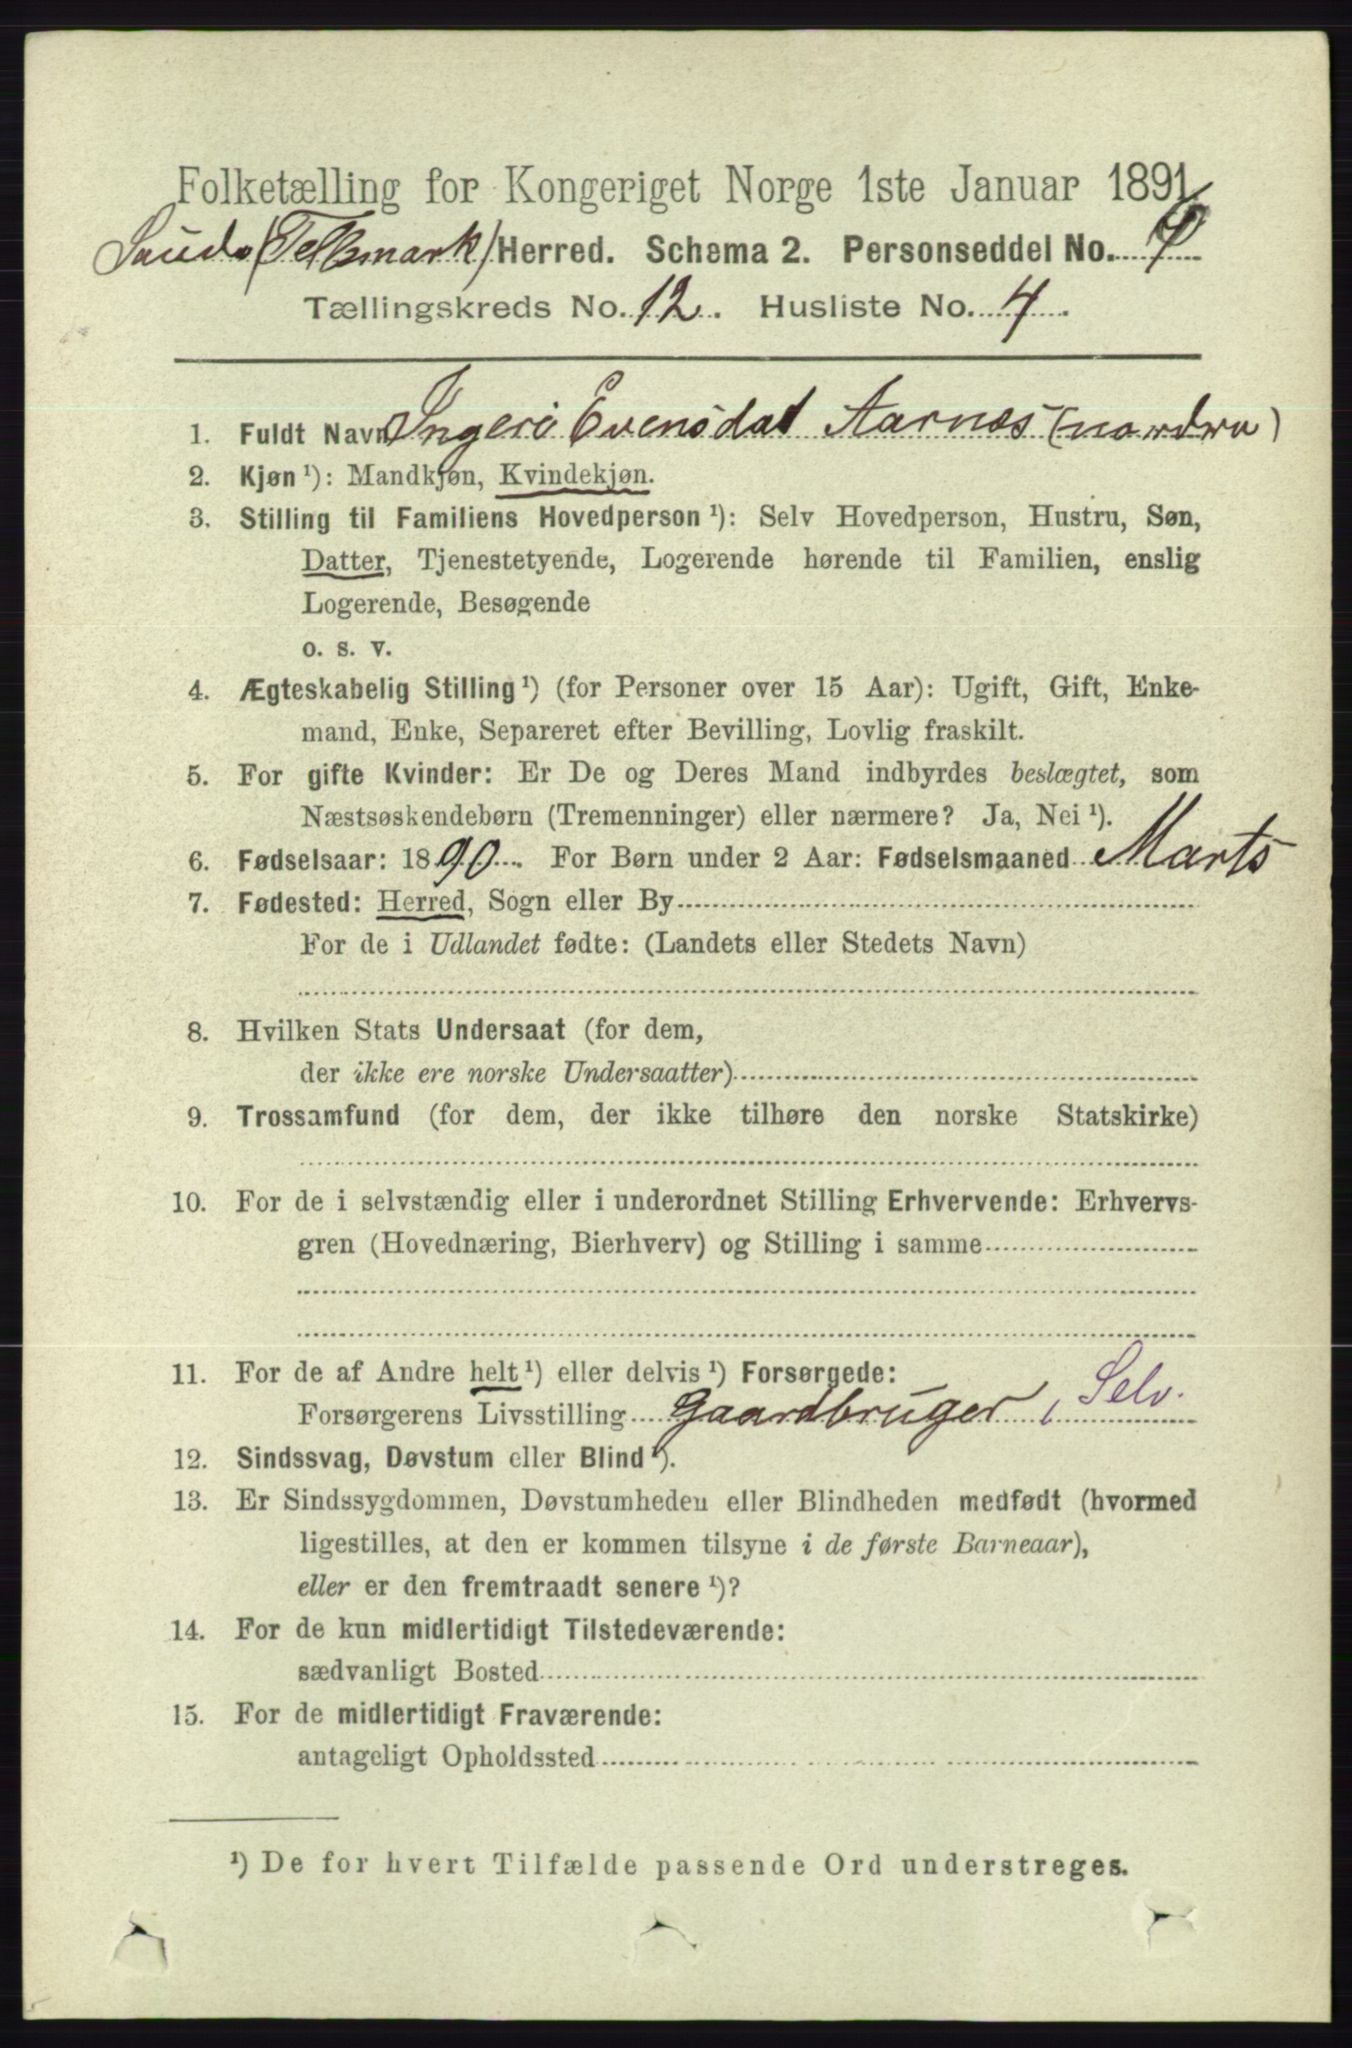 Folketælling for Kongeriget Norge 1ste Januar 1891
Saude (Telemark) Herred. Schema 2. Personseddel No.
Tællingskreds No. 12. Husliste No. 4.
1. Fuldt Navn Ingeri Evensdat Aarnes (nordre)
2. Kjøn ¹): Mandkjøn, Kvindekjøn.
3. Stilling til Familiens Hovedperson ¹): Selv Hovedperson, Hustru, Søn,
Datter, Tjenestetyende, Logerende hørende til Familien, enslig
Logerende, Besøgende
o. s. v.
4. Ægteskabelig Stilling ¹) (for Personer over 15 Aar): Ugift, Gift, Enke-
mand, Enke, Separeret efter Bevilling, Lovlig fraskilt.
5. For gifte Kvinder: Er De og Deres Mand indbyrdes beslægtet, som
Næstsøskendebørn (Tremenninger) eller nærmere? Ja, Nei ¹).
6. Fødselsaar: 1890. For Børn under 2 Aar: Fødselsmaaned Marts
7. Fødested: Herred, Sogn eller By
For de i Udlandet fødte: (Landets eller Stedets Navn)
8. Hvilken Stats Undersaat (for dem,
der ikke ere norske Undersaatter)
9. Trossamfund (for dem, der ikke tilhøre den norske Statskirke)
10. For de i selvstændig eller i underordnet Stilling Erhvervende: Erhvervs-
gren (Hovednæring, Bierhverv) og Stilling i samme
11. For de af Andre helt ¹) eller delvis ¹) Forsørgede:
Forsørgerens Livsstilling Gaardbruger, Selv.
12. Sindssvag, Døvstum eller Blind ¹).
13. Er Sindssygdommen, Døvstumheden eller Blindheden medfødt (hvormed
ligestilles, at den er kommen tilsyne i de første Barneaar),
eller er den fremtraadt senere ¹)?
14. For de kun midlertidigt Tilstedeværende:
sædvanligt Bosted
15. For de midlertidigt Fraværende:
antageligt Opholdssted
¹) De for hvert Tilfælde passende Ord understreges.